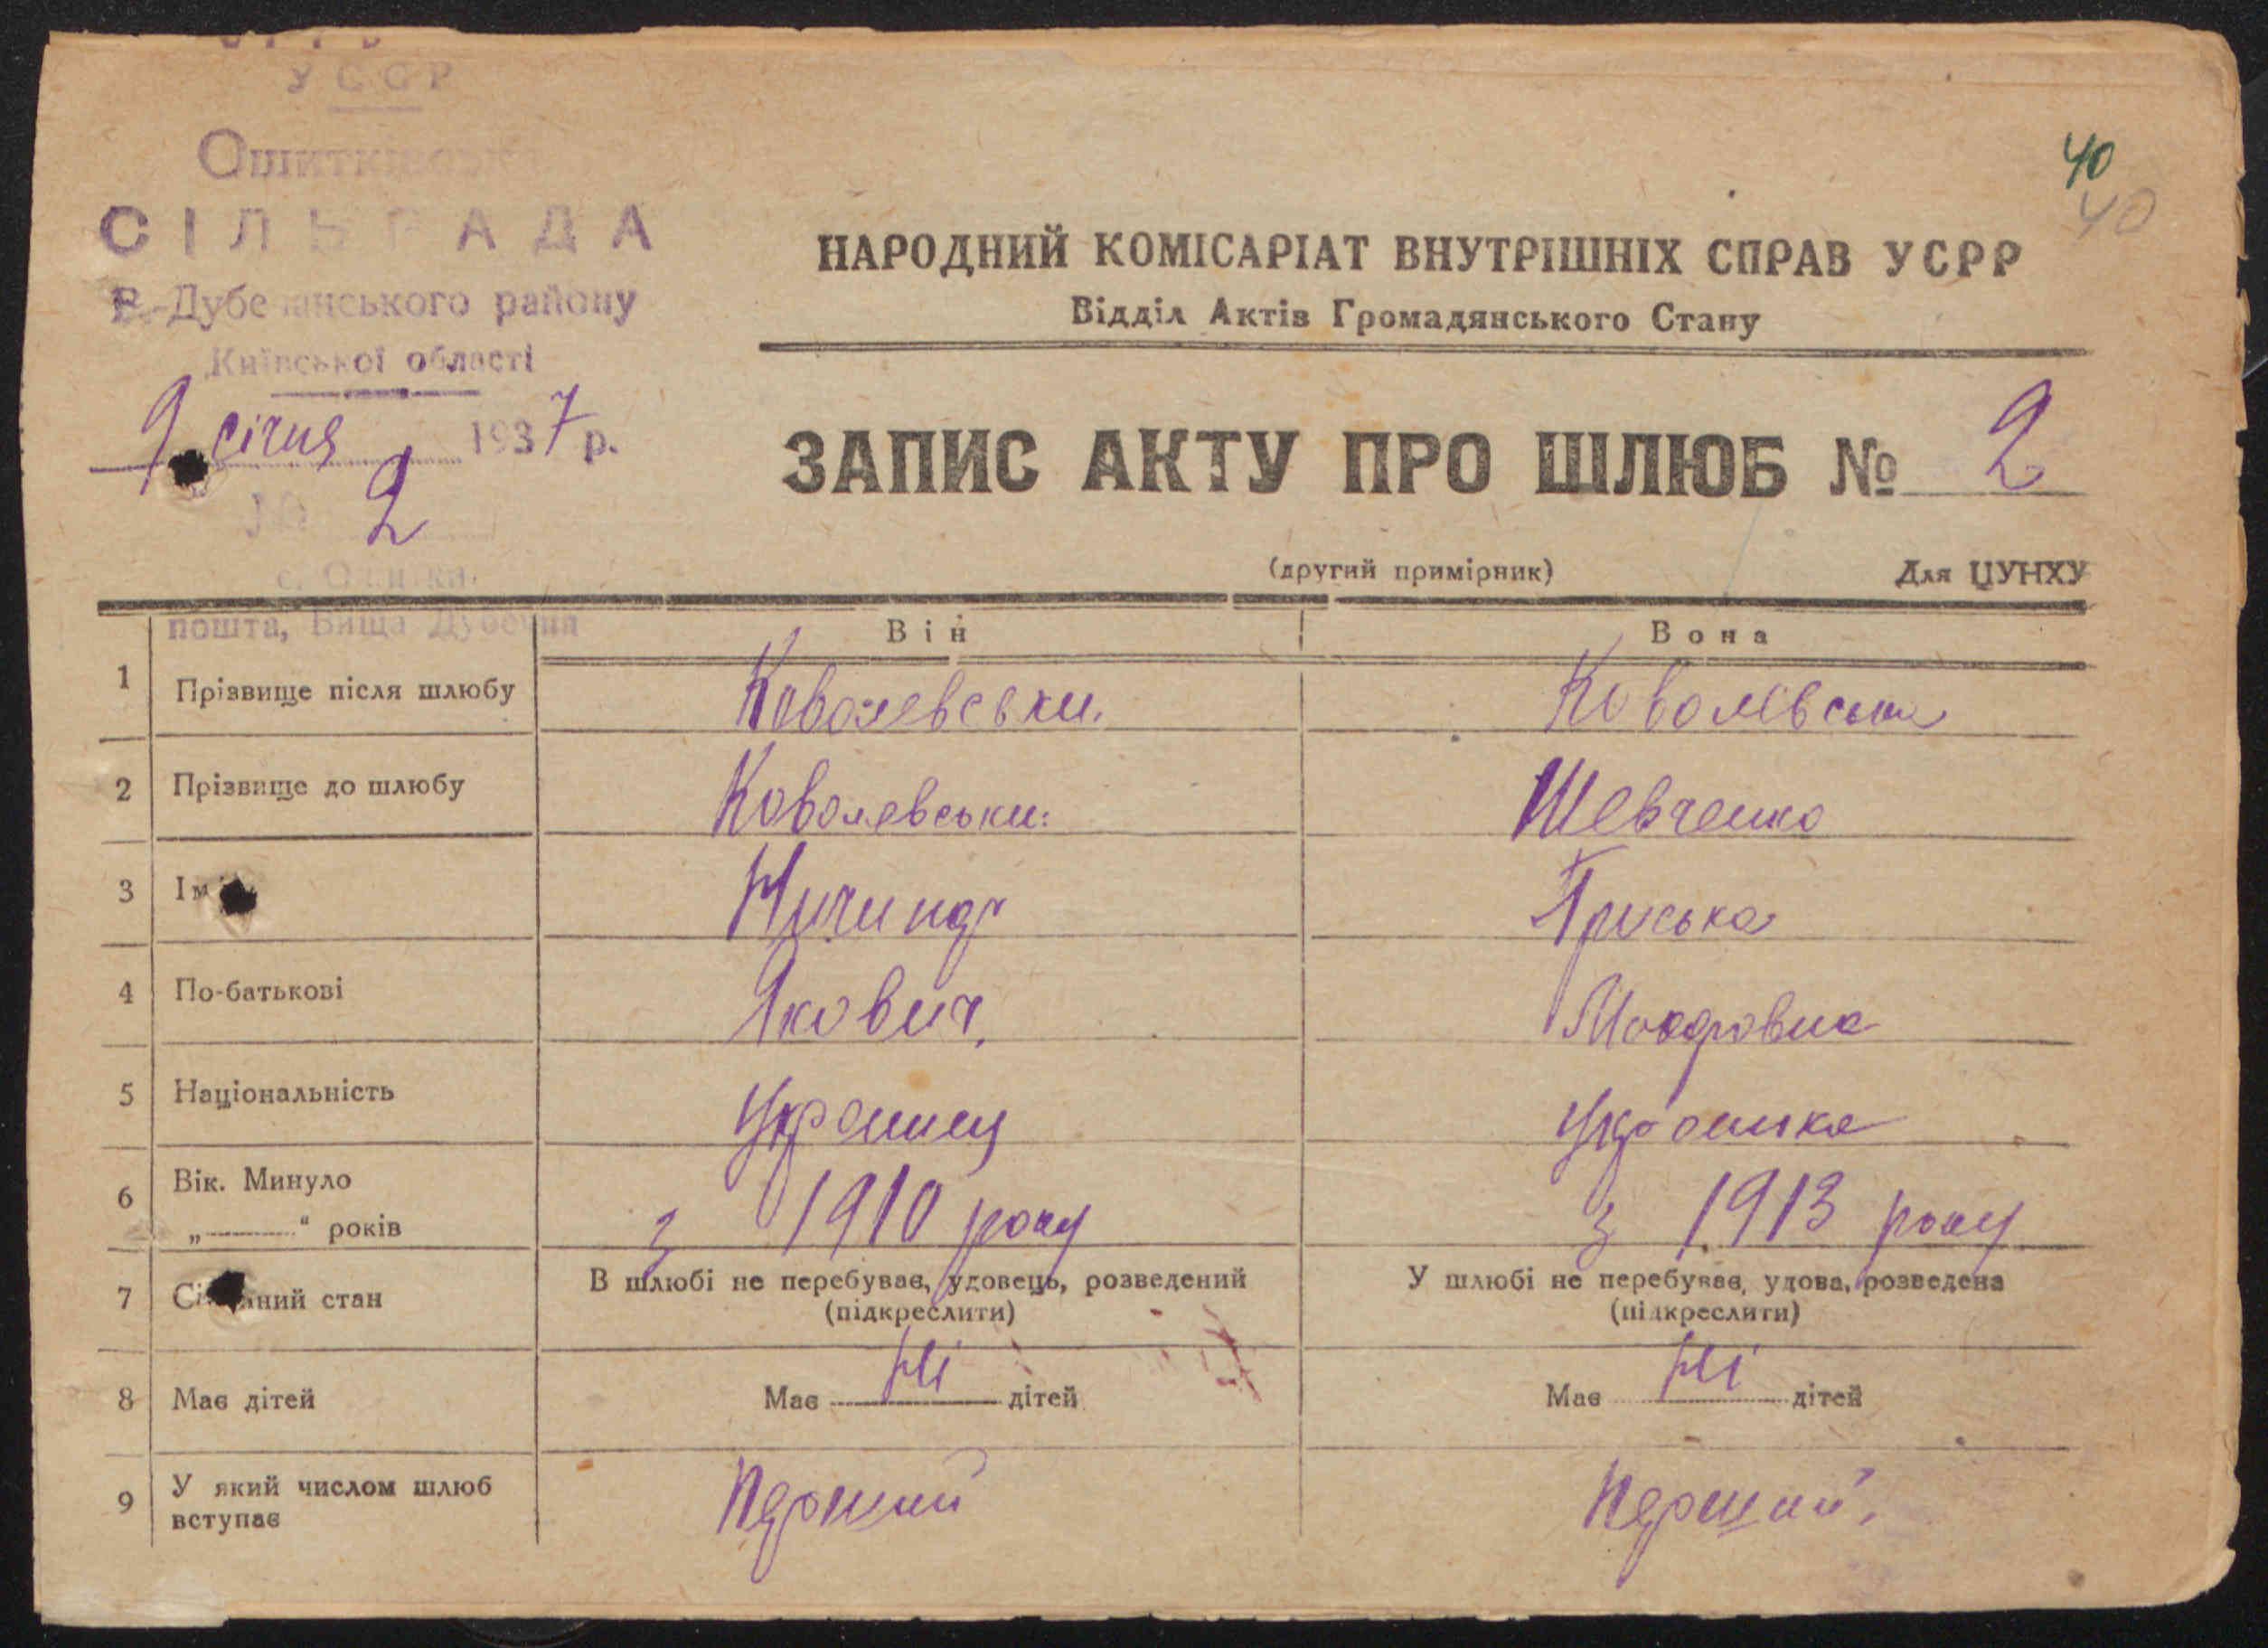 УСРР
Ошитківська
СІЛЬРАДА
В.-Дубечанського району
Київської області
9 січня 1937 р.
№ 2
с. Ошитки
пошта, Вища Дубечня
40
40
НАРОДНИЙ КОМІСАРІАТ ВНУТРІШНІХ СПРАВ УСРР
Відділ Актів Громадянського Стану
ЗАПИС АКТУ ПРО ШЛЮБ № 2
(другий примірник) Для ЦУНХУ
Він Вона
1 Прізвище після шлюбу Ковалевськи. Ковалівська
2 Прізвище до шлюбу Ковалевськи: Шевченко
3 Ім Приська
4 По-батькові Якович.
5 Національність Українец Українка
6 Вік. Минуло
„ “ років з 1910 року з 1913 року
7 Сі ний стан В шлюбі не перебував, удовець, розведений У шлюбі не перебував, удова, розведена
(підкреслити) (підкреслити)
8 Має дітей Має ні дітей Має ні дітей
9 У який числом шлюб вступає Перший Перший.